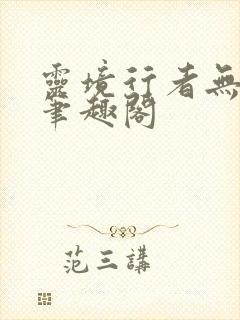 靈境行者無
筆趣閣
范三講